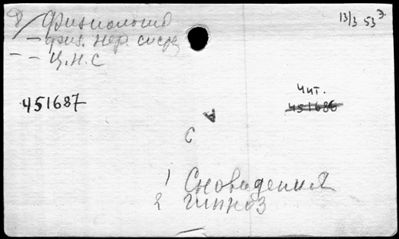 Физиология
13/3 53 г
— физ. нер. сист
— Ц.Н.С
451687
Чит.
451686
С
1 Сновидения
2 гипноз